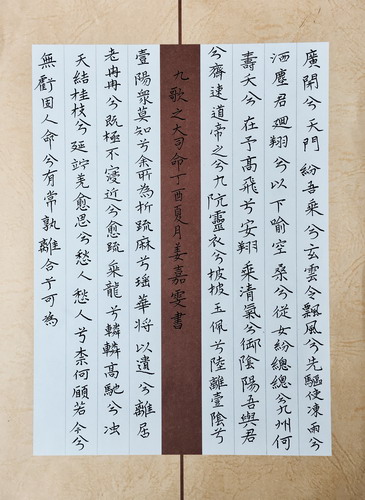 廣開兮天門紛吾乘兮玄雲令飄風兮先驅使凍雨兮
洒塵君迴翔兮以下喻空桑兮從女紛總總兮九州何
壽夭兮在予高飛兮安翔乘清氣兮御陰陽吾與君
兮齋速道帝之兮九阬靈衣兮披披玉佩兮陸離壹陰兮
九歌之大司命丁酉夏月姜嘉雯書
壹陽衆莫知兮余所為折疏麻兮瑶華將以遺兮離居
老冉冉兮既極不寖近兮愈疏乘龍兮轔轔高馳兮沖
天結桂枝兮延竚羌愈思兮愁人愁人兮柰何願若今兮
無虧固人命兮有常孰離合兮可為